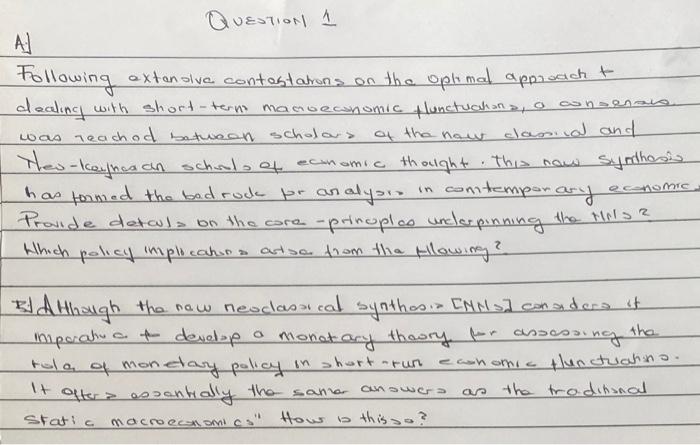 QUESTION 1
A]
Following extensive contestations on the optimal approach to
dealing with short-term macroeconomic fluctuations, a consensus
was reached between scholars of the new classical and
Neo-keynesian schools of economic thought. This new synthesis
has formed the bedrock for analysis in contemporary economic.
Provide details on the core-principles underpinning the NNS?
Which policy implications arise from the following?
B] Although the new neoclassical synthesis [NNS] considers it
imperative to develop a monetary theory for assessing the
role of monetary policy in short-run economic fluctuations.
It offers essentially the same answers as the traditional
static macroeconomics" How is this so?